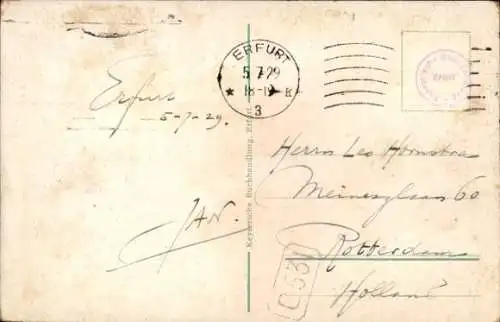 ERFURT
5 7 29
* 18-19 *
3
Erfurt
5-7-29.
JAN.
Keysersche Buchhandlung, Erfurt.
Herrn Leo Hornstra
60
Rotterdam
Holland